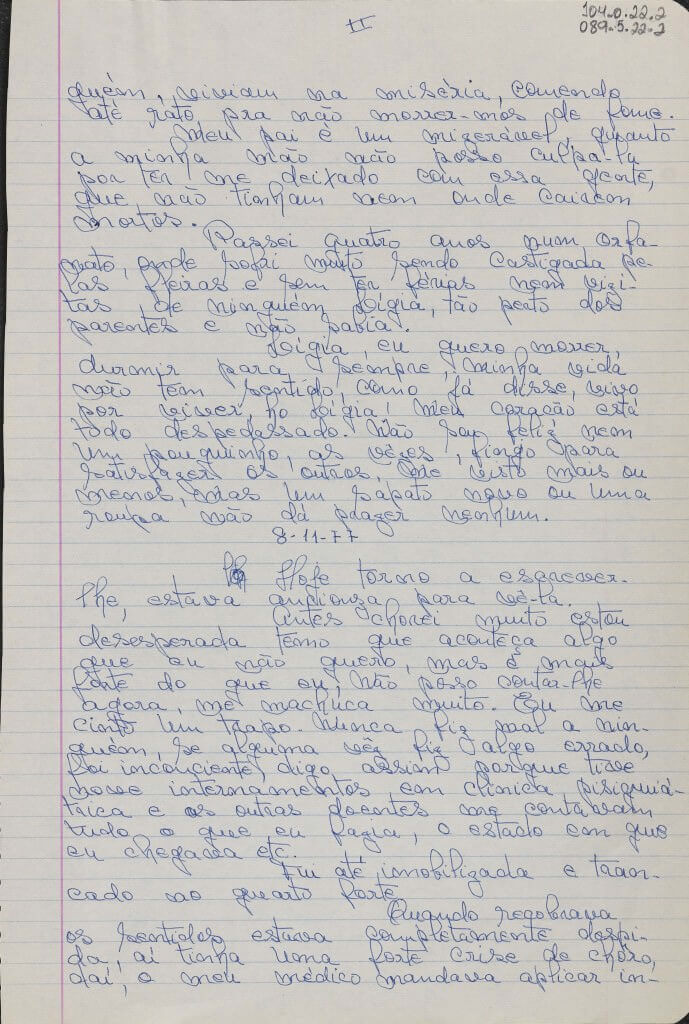 II
104.0.22.2
089.5.22.2
guém, viviam na miséria, comendo
até rato pra não morrer-mos de fome.
Meu pai é um mizerável, quanto
a minha mão não posso culpá-la
por ter me deixado com essa gente,
que não tinham nem onde cairem
mortos.
Passei quatro anos num orfa-
nato, onde sofri muito sendo castigada pe-
las freiras e sem ter férias nem vizi-
tas, de ninguém Lígia, tão perto dos
parentes e não sabia.
Lígia, eu quero morrer,
durmir para sempre, minha vida
não tem sentido, como já disse, vivo
por viver, no Lígia! Meu coração está
todo despedassado. Não sou feliz nem
um pouquinho, as vêzes, finjo para
satisfazer os outros, me visto mais ou
menos, mas um sapato novo ou uma
roupa não dá prazer nenhum.
8-11-77
Hoje torno a escrever-
lhe, estava anciosa para vê-la.
Antes chorei muito estou
desesperada temo que aconteça algo
que eu não quero, mas é mais
forte do que eu, não posso contar-lhe
agora, me machuca muito. Eu me
cinto um trapo. Nunca fiz mal a nin-
guém, se alguma vêz fiz algo errado,
foi inconciente, digo assim porque tive
nove internamentos em clínica pisiquiá-
trica e as outras doentes me contavam
tudo o que eu fazia, o estado em que
eu chegava etc.
Fui até imobilizada e tran-
cado ao quarto forte.
Quando recobrava
os sentidos estava completamente despi-
da, ai tinha uma forte crise de chôro,
daí, o meu médico mandava aplicar in-